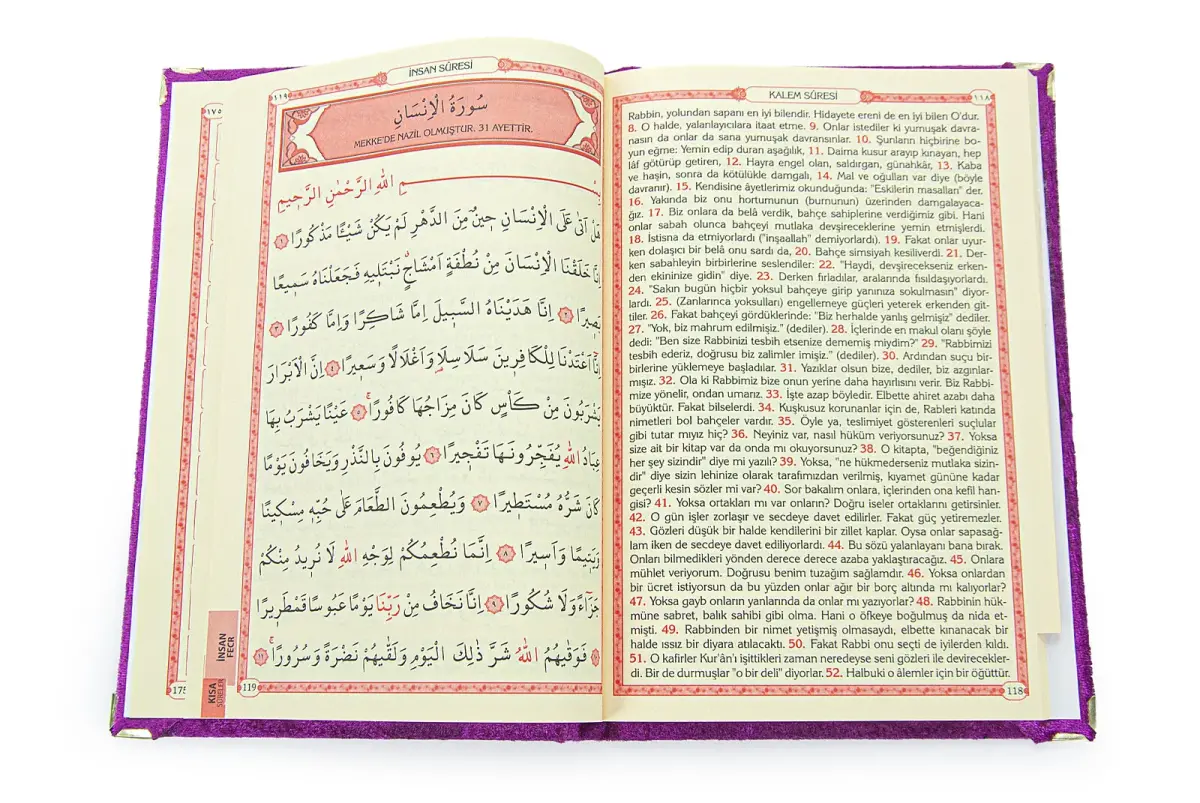 KALEM SÛRESİ
١١٨
Rabbin, yolundan sapanı en iyi bilendir. Hidayete ereni de en iyi bilen O'dur.
8. O halde, yalanlayıcılara itaat etme. 9. Onlar istediler ki yumuşak davra-
nasın da onlar da sana yumuşak davransınlar. 10. Şunların hiçbirine bo-
yun eğme: Yemin edip duran aşağılık, 11. Daima kusur arayıp kınayan, hep
lâf götürüp getiren, 12. Hayra engel olan, saldırgan, günahkâr, 13. Kaba
ve haşin, sonra da kötülükle damgalı, 14. Mal ve oğulları var diye (böyle
davranır). 15. Kendisine âyetlerimiz okunduğunda: "Eskilerin masalları" der.
16. Yakında biz onu hortumunun (burnunun) üzerinden damgalayaca-
ğız. 17. Biz onlara da belâ verdik, bahçe sahiplerine verdiğimiz gibi. Hani
onlar sabah olunca bahçeyi mutlaka devşireceklerine yemin etmişlerdi.
18. İstisna da etmiyorlardı ("inşaallah" demiyorlardı). 19. Fakat onlar uyur-
ken dolaşıcı bir belâ onu sardı da, 20. Bahçe simsiyah kesiliverdi. 21. Der-
ken sabahleyin birbirlerine seslendiler: 22. "Haydi, devşirecekseniz erken-
den ekininize gidin" diye. 23. Derken fırladılar, aralarında fısıldaşıyorlardı.
24. "Sakın bugün hiçbir yoksul bahçeye girip yanınıza sokulmasın" diyor-
lardı. 25. (Zanlarınca yoksulları) engellemeye güçleri yeterek erkenden git-
tiler. 26. Fakat bahçeyi gördüklerinde: "Biz herhalde yanlış gelmişiz" dediler.
27. "Yok, biz mahrum edilmişiz." (dediler). 28. İçlerinde en makul olanı şöyle
dedi: "Ben size Rabbinizi tesbih etsenize dememiş miydim?" 29. "Rabbimizi
tesbih ederiz, doğrusu biz zalimler imişiz." (dediler). 30. Ardından suçu bir-
birlerine yüklemeye başladılar. 31. Yazıklar olsun bize, dediler, biz azgınlar-
mışız. 32. Ola ki Rabbimiz bize onun yerine daha hayırlısını verir. Biz Rabbi-
mize yönelir, ondan umarız. 33. İşte azap böyledir. Elbette ahiret azabı daha
büyüktür. Fakat bilselerdi. 34. Kuşkusuz korunanlar için de, Rableri katında
nimetleri bol bahçeler vardır. 35. Öyle ya, teslimiyet gösterenleri suçlular
gibi tutar mıyız hiç? 36. Neyiniz var, nasıl hüküm veriyorsunuz? 37. Yoksa
size ait bir kitap var da onda mı okuyorsunuz? 38. O kitapta, "beğendiğiniz
her şey sizindir" diye mi yazılı? 39. Yoksa, "ne hükmederseniz mutlaka sizin-
dir" diye sizin lehinize olarak tarafımızdan verilmiş, kıyamet gününe kadar
geçerli kesin sözler mi var? 40. Sor bakalım onlara, içlerinden ona kefil han-
gisi? 41. Yoksa ortakları mı var onların? Doğru iseler ortaklarını getirsinler.
42. O gün işler zorlaşır ve secdeye davet edilirler. Fakat güç yetiremezler.
43. Gözleri düşük bir halde kendilerini bir zillet kaplar. Oysa onlar sapasağ-
lam iken de secdeye davet ediliyorlardı. 44. Bu sözü yalanlayanı bana bırak.
Onları bilmedikleri yönden derece derece azaba yaklaştıracağız. 45. Onlara
mühlet veriyorum. Doğrusu benim tuzağım sağlamdır. 46. Yoksa onlardan
bir ücret istiyorsun da bu yüzden onlar ağır bir borç altında mı kalıyorlar?
47. Yoksa gayb onların yanlarında da onlar mı yazıyorlar? 48. Rabbinin hük-
müne sabret, balık sahibi gibi olma. Hani o öfkeye boğulmuş da nida et-
mişti. 49. Rabbinden bir nimet yetişmiş olmasaydı, elbette kınanacak bir
halde ıssız bir diyara atılacaktı. 50. Fakat Rabbi onu seçti de iyilerden kıldı.
51. O kafirler Kur'ân'ı işittikleri zaman neredeyse seni gözleri ile devirecekler-
di. Bir de durmuşlar "o bir deli" diyorlar. 52. Halbuki o âlemler için bir öğüttür.
118
İNSAN SÛRESİ
١١٩
سُورَةُ الْاِنْسَانِ
MEKKE'DE NAZİL OLMUŞTUR. 31 AYETTİR.
بِسْمِ اللّٰهِ الرَّحْمٰنِ الرَّح۪يمِ
هَلْ اَتٰى عَلَى الْاِنْسَانِ ح۪ينٌ مِنَ الدَّهْرِ لَمْ يَكُنْ شَيْـًٔا مَذْكُورًا ١
اِنَّا خَلَقْنَا الْاِنْسَانَ مِنْ نُطْفَةٍ اَمْشَاجٍۗ نَبْتَل۪يهِ فَجَعَلْنَاهُ سَم۪يعًا
بَص۪يرًا ٢ اِنَّا هَدَيْنَاهُ السَّب۪يلَ اِمَّا شَاكِرًا وَاِمَّا كَفُورًا ٣
اِنَّٓا اَعْتَدْنَا لِلْكَافِر۪ينَ سَلَاسِلَا۬ وَاَغْلَالًا وَسَع۪يرًا ٤ اِنَّ الْاَبْرَارَ
يَشْرَبُونَ مِنْ كَأْسٍ كَانَ مِزَاجُهَا كَافُورًاۚ ٥ عَيْنًا يَشْرَبُ بِهَا
عِبَادُ اللّٰهِ يُفَجِّرُونَهَا تَفْج۪يرًا ٦ يُوفُونَ بِالنَّذْرِ وَيَخَافُونَ يَوْمًا
كَانَ شَرُّهُ مُسْتَط۪يرًا ٧ وَيُطْعِمُونَ الطَّعَامَ عَلٰى حُبِّه۪ مِسْك۪ينًا
وَيَت۪يمًا وَاَس۪يرًا ٨ اِنَّمَا نُطْعِمُكُمْ لِوَجْهِ اللّٰهِ لَا نُر۪يدُ مِنْكُمْ
جَزَٓاءً وَلَا شُكُورًا ٩ اِنَّا نَخَافُ مِنْ رَبِّنَا يَوْمًا عَبُوسًا قَمْطَر۪يرًا
١٠ فَوَقٰيهُمُ اللّٰهُ شَرَّ ذٰلِكَ الْيَوْمِ وَلَقّٰيهُمْ نَضْرَةً وَسُرُورًاۚ ١١
119
١٧٥
175
İNSAN
FECR
KISA
SÛRELER